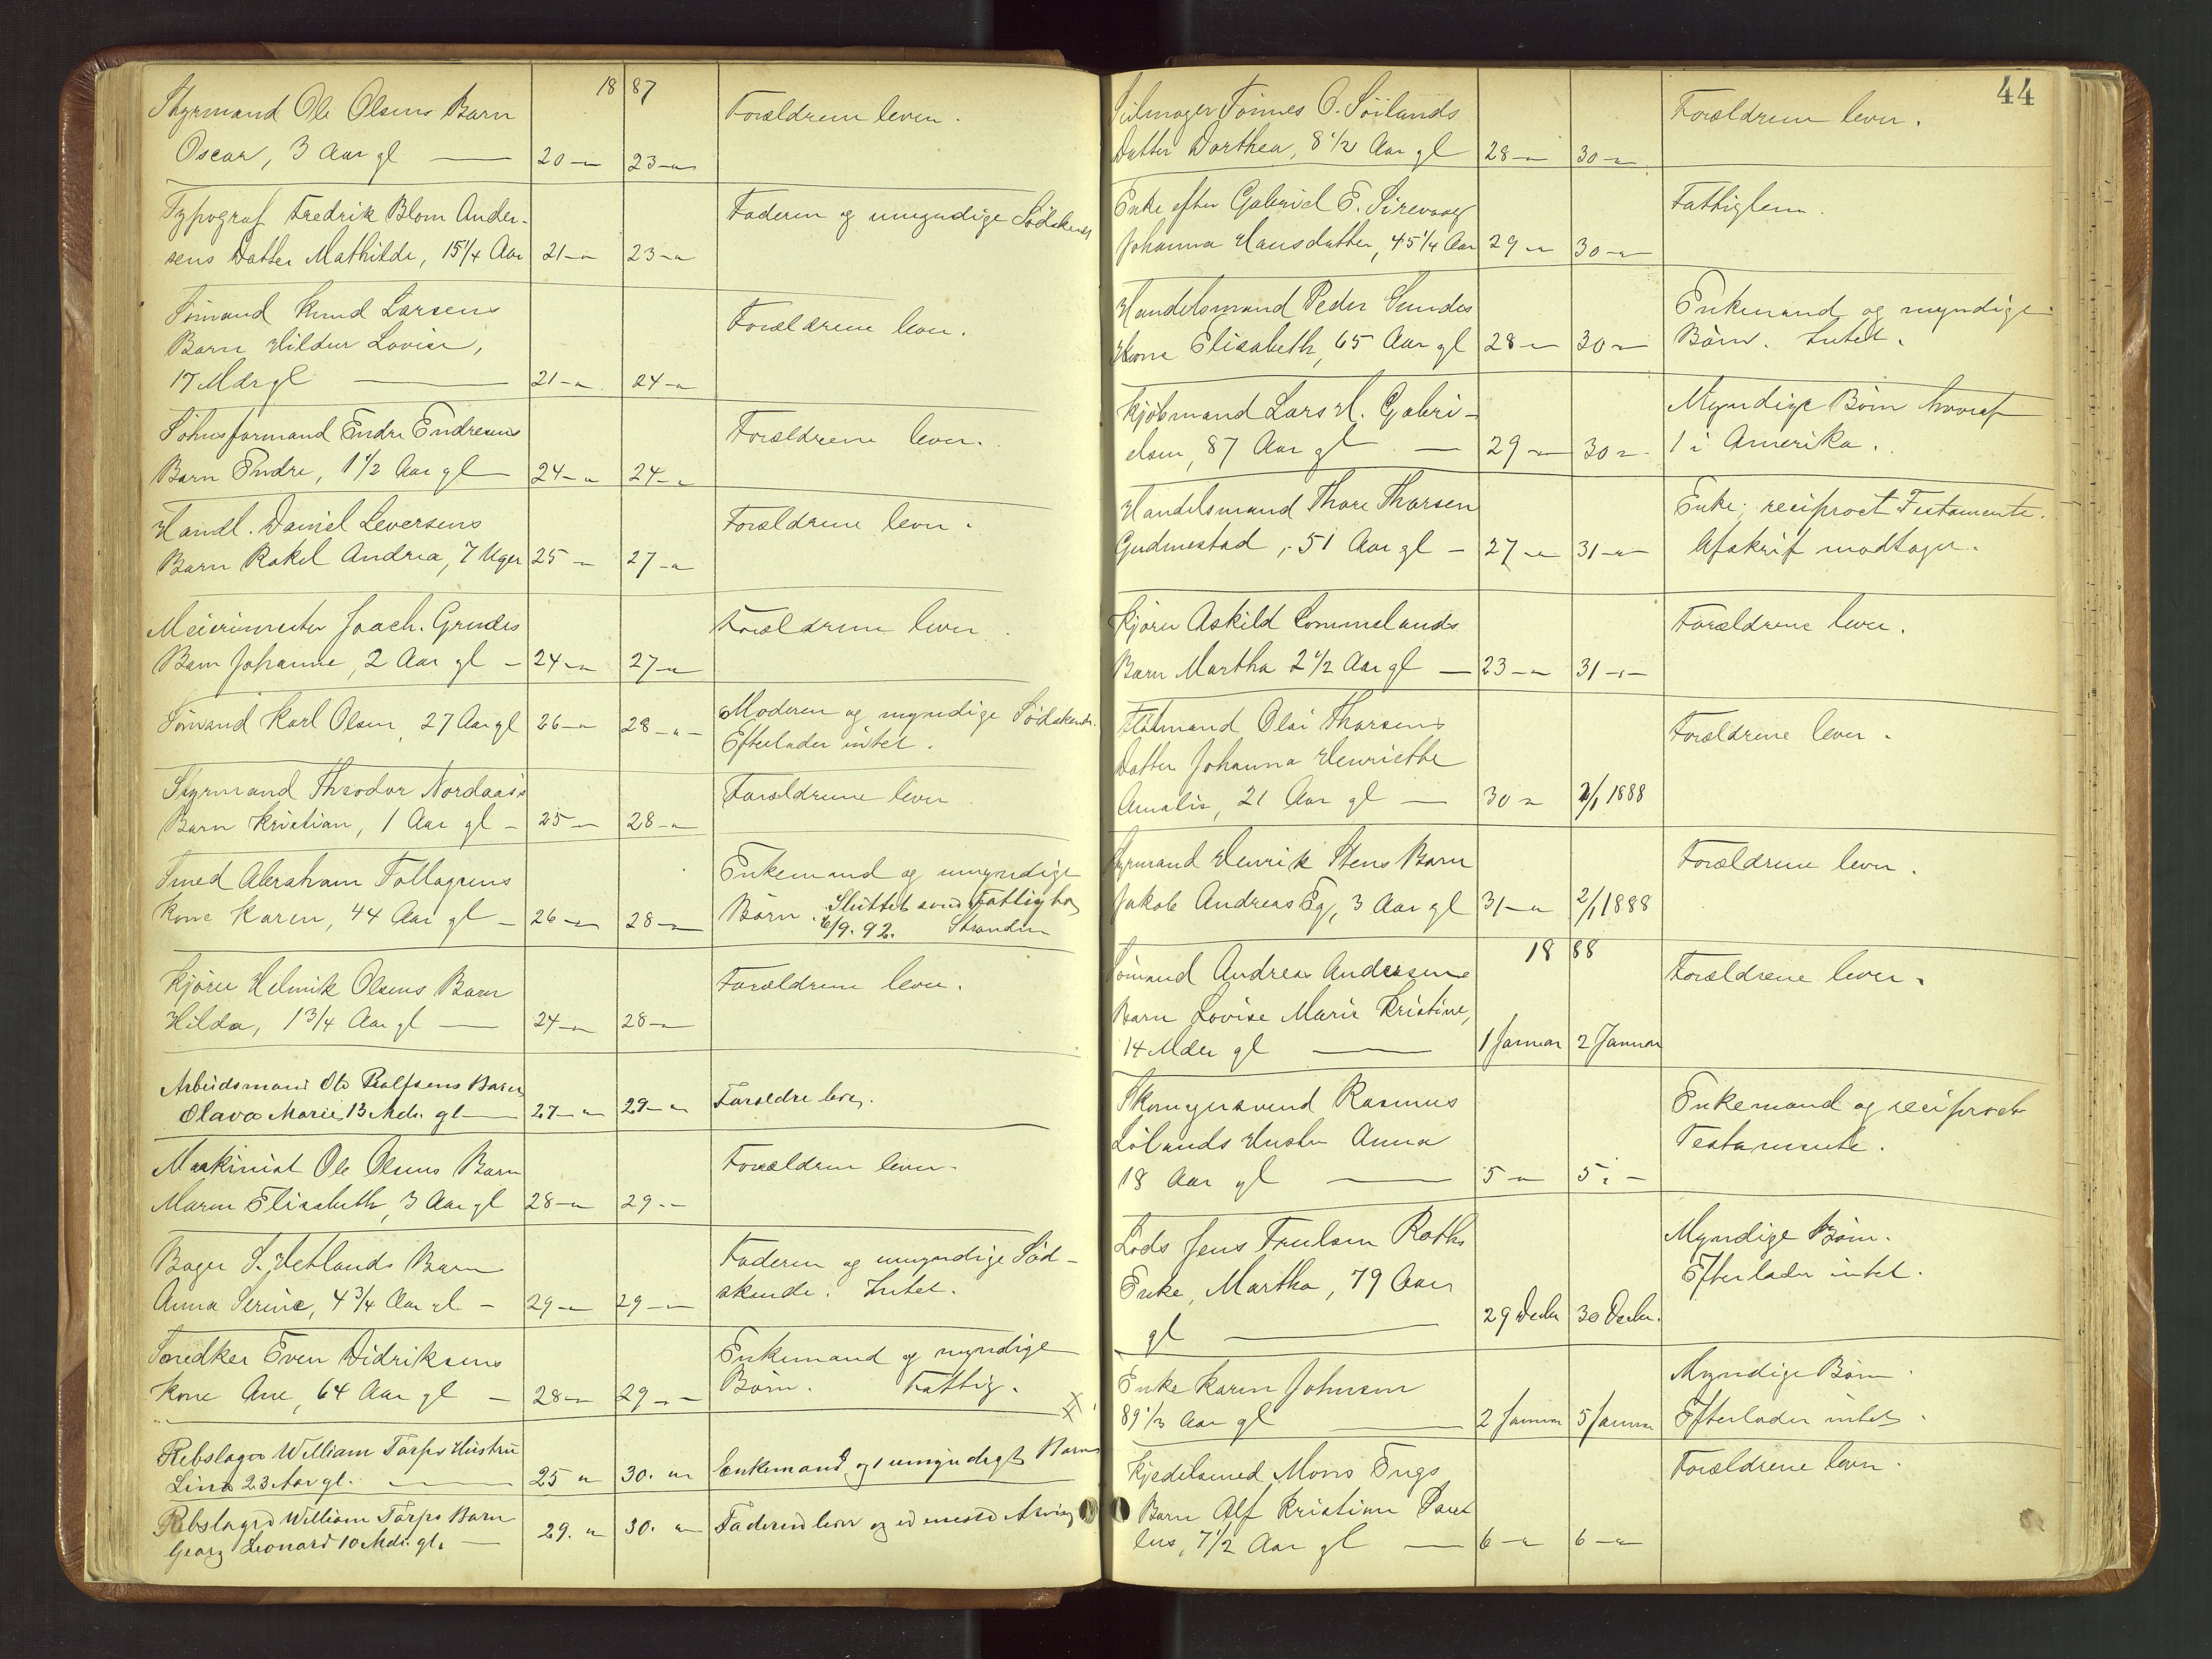 18 87
Styrmand Ole Olsens Barn
Oscar, 3 Aar gl — 20 – " 23 – "
Forældrene lever.
Typograf Fredrik Blom Ander-
sens Datter Mathilde, 15 1/4 Aar 21 – " 23 – "
Faderen og umyndige Södskende
Sömand Knud Larsens
Barn Hildur Lovise,
17 Mdr gl — 21 – " 24 – "
Forældrene lever.
formand Endre Endresens
Barn Endre, 1 1/2 Aar gl — 24 – " 24 – "
Forældrene lever.
Handl. Daniel Leversens
Barn Rakel Andrea, 7 Uger 25 – " 27 – "
Forældrene lever.
Meierimester Joach. Grudes
Barn Johanne, 2 Aar gl – 24 – " 27 – "
Forældrene lever.
Sömand Karl Olsen, 27 Aar gl 26 – " 28 – " –
Moderen og myndige Södskende.
Efterlader intet.
Styrmand Theodor Nordaas's
Barn Kristian, 1 Aar gl – 25 – " 28 – "
Forældrene lever
Smed Abraham Tollagsens
Kone Karen, 44 Aar gl – 26 – " 28 – "
Enkemand og umyndige
Börn. Sluttet som Fattigbo
6/9. 92.
Kjörer Helmik Olsens Barn
Hilda, 1 3/4 Aar gl — 24 – " 28 – "
Forældrene lever.
Arbeidsmand Ole Rolfsens Barn
Olava Marie, 13 Mdr. gl — 27 – " 29 – "
Forældre lever.
Maskinist Ole Olsens Barn
Maren Elisabeth, 3 Aar gl 28 – " 29 . –
Forældrene lever –
Bager S. Hetlands Barn
Anna Serine, 4 3/4 Aar gl – 29 – " 29 – "
Faderen og umyndige Söd-
skende. Intet.
Snedker Even Didriksens
Kone Ane, 64 Aar gl – 28 – " 29 – –
Enkemand og myndige
Börn. Fattig.
Rebslager William Torps Hustru
Lina 23 Aar gl. — 25 " 30. "
Enkemand og 1 umyndigt Barn
Rebslager William Torps Barn
Georg Leonard 10 Mdr. gl. — 29. " 30. "
Faderen lever og er eneste Arving
44
Seilmager Tönnes O. Söilands
Datter Dorthea, 8 1/2 Aar gl 28 – " 30 – "
Forældrene lever.
Enke efter Gabriel E. Sirevaag
Johanna Hansdatter, 45 1/4 Aar 29 – " 30 – "
Fattiglem.
Handelsmand Peder Sundes
Kone Elisabeth, 65 Aar gl 28 – " 30 – "
Enkemand og myndige
Börn. Intet.
Kjöbmand Lars H. Gabri-
elsen, 87 Aar gl — 29 – " 30 "
Myndige Börn hvoraf
1 i Amerika.
Handelsmand Thore Thorsen
Gudmestad, 51 Aar gl – 27 – " 31 – "
Enke; reciproct Testamente.
Afskrift modtaget.
Kjörer Askild Lommelands
Barn Martha 2 1/2 Aar gl — 23 – " 31 – " –
Forældrene lever.
Olai Thorsens
Datter Johanna Henriette
Amalie, 21 Aar gl — 30 " 2/1 1888
Forældrene lever.
Styrmand Henrik Stens Barn
Jakob Andreas Eg, 3 Aar gl 31 – " 2/1 1888
Forældrene lever.
18 88
Sömand Andreas Andersens
Barn Lovise Marie Kristine,
14 Mder gl — 1 Januar 2 Januar
Forældrene lever.
Skomagersvend Rasmus
Lölands Hustru Anna
18 Aar gl — 5 – " 5 " –
Enkemand og reciproct
Testamente.
Lods Jens Trulsen Roths
Enke, Martha, 79 Aar
gl — 29 Decbr 30 Decbr.
Myndige Börn.
Efterlader intet.
Enke Karen Johnsen
89 1/3 Aar gl — 2 Januar 5 Januar
Myndige Börn
Efterlader intet.
Kjedelsmed Mons Engs
Barn Alf Kristian Paul
ius, 7 1/2 Aar gl — 6 – " 6 – "
Forældrene lever.